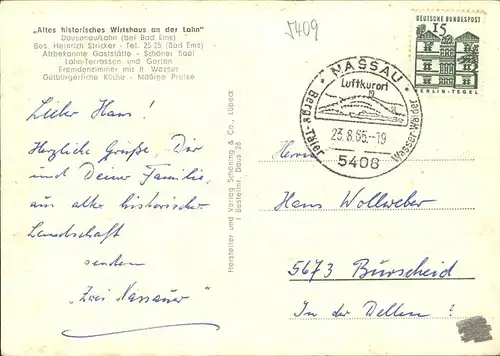 "Altes historisches Wirtshaus an der Lahn"
Dausenau/Lahn (bei Bad Ems)
Bes. Heinrich Stricker - Tel. 25 25 (Bad Ems)
Altbekannte Gaststätte - Schöner Saal
Lahn-Terrassen und Garten
Fremdenzimmer mit fl. Wasser
Gutbürgerliche Küche - Mäßige Preise
5409
DEUTSCHE BUNDESPOST
15
BERLIN-TEGEL
NASSAU
Luftkurort
Berge-Täler
Wasser-Wälder
23.8.65.-19
5408
Lieber Hans!
Herzliche Grüße, Dir
und Deiner Familie,
aus alter historischer
Landschaft
senden
"Zwei Nassauer"
Hersteller und Verlag Schöning & Co., Lübeck
Bestellnr. Daus 28
Herrn
Hans Wollweber
5673 Burscheid
In der Dellen